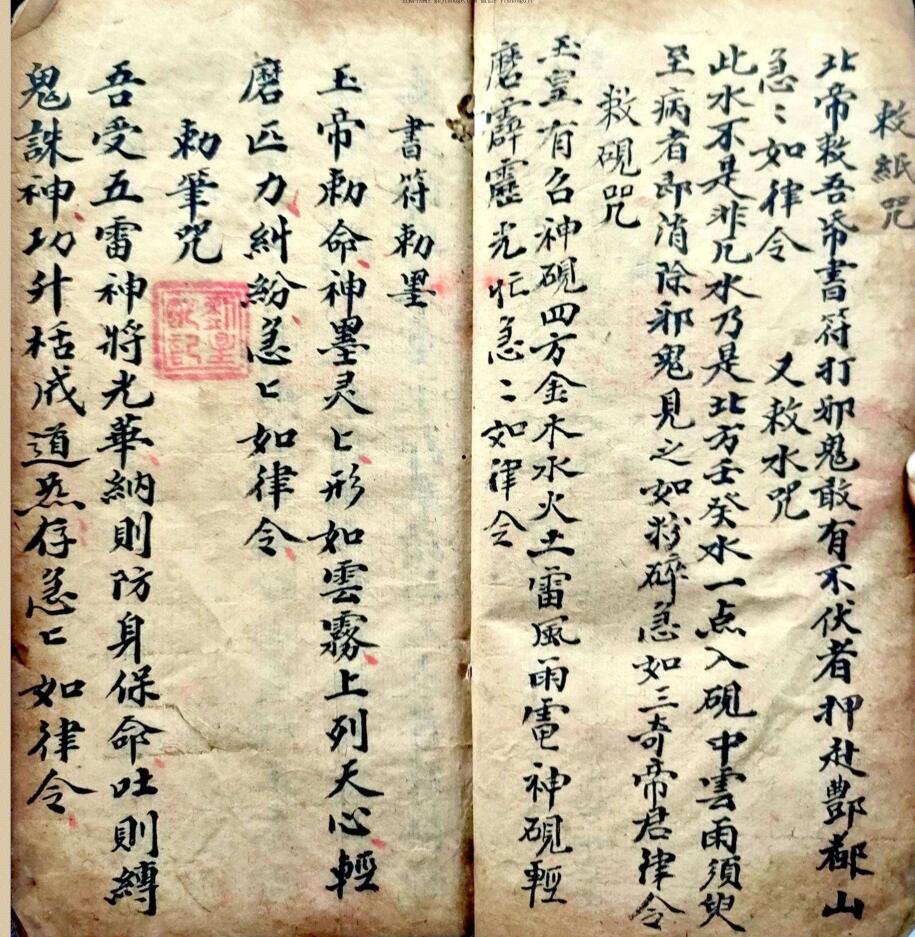 敕紙咒
北帝敕吾帋書符打邪鬼敢有不伏者押赴酆都山
急〻如律令　又敕水咒
此水不是非凡水乃是北方壬癸水一点入硯中雲雨須臾
至病者即消除邪鬼見之如粉碎急如三奇帝君律令
敕硯咒
玉皇有召神硯四方金木水火土雷風雨電神硯輕
磨霹靂光忙急〻如律令
書符勅墨
玉帝勅命神墨灵匕形如雲霧上列天心輕
磨匹力糾紛急匕如律令
勅筆咒
吾受五雷神將光華納則防身保命吐則縛
鬼誅神功升栝成道炁存急匕如律令